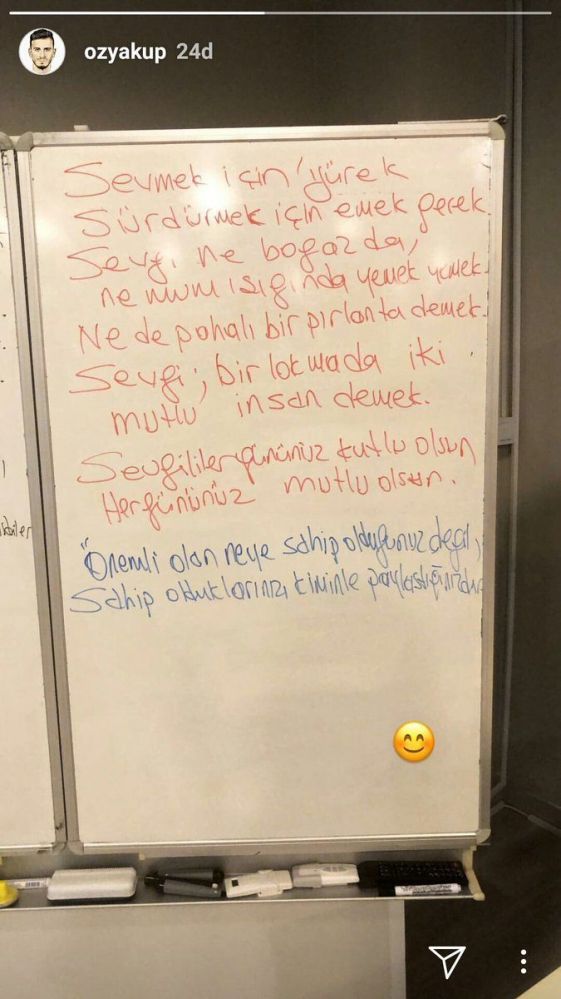 ozyakup 24d
Sevmek için yürek
Sürdürmek için emek gerek.
Sevgi ne boğazda,
ne mum ışığında yemek yemek.
Ne de pahalı bir pırlanta demek.
Sevgi; bir lokmada iki
mutlu insan demek.
Sevgililer gününüz kutlu olsun
Hergününüz mutlu olsun.
"Önemli olan neye sahip olduğunuz değil,
Sahip olduklarınızı kiminle paylaştığınızdır